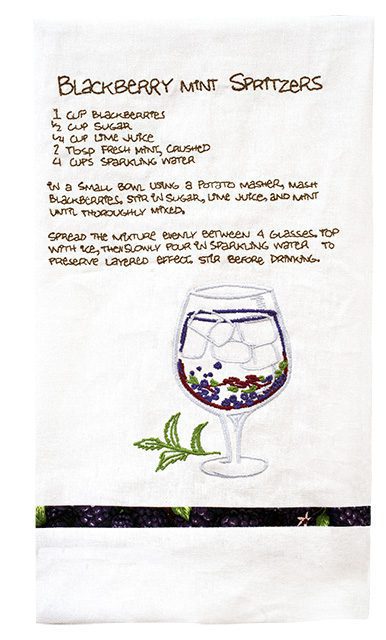 BLACKBERRY MINT SPRITZERS
1 CUP BLACKBERRIES
1/2 CUP SUGAR
1/4 CUP LIME JUICE
2 TBSP FRESH MINT, CRUSHED
4 CUPS SPARKLING WATER
IN A SMALL BOWL USING A POTATO MASHER, MASH
BLACKBERRIES. STIR IN SUGAR, LIME JUICE, AND MINT
UNTIL THOROUGHLY MIXED.
SPREAD THE MIXTURE EVENLY BETWEEN 4 GLASSES. TOP
WITH ICE, THEN SLOWLY POUR IN SPARKLING WATER TO
PRESERVE LAYERED EFFECT. STIR BEFORE DRINKING.